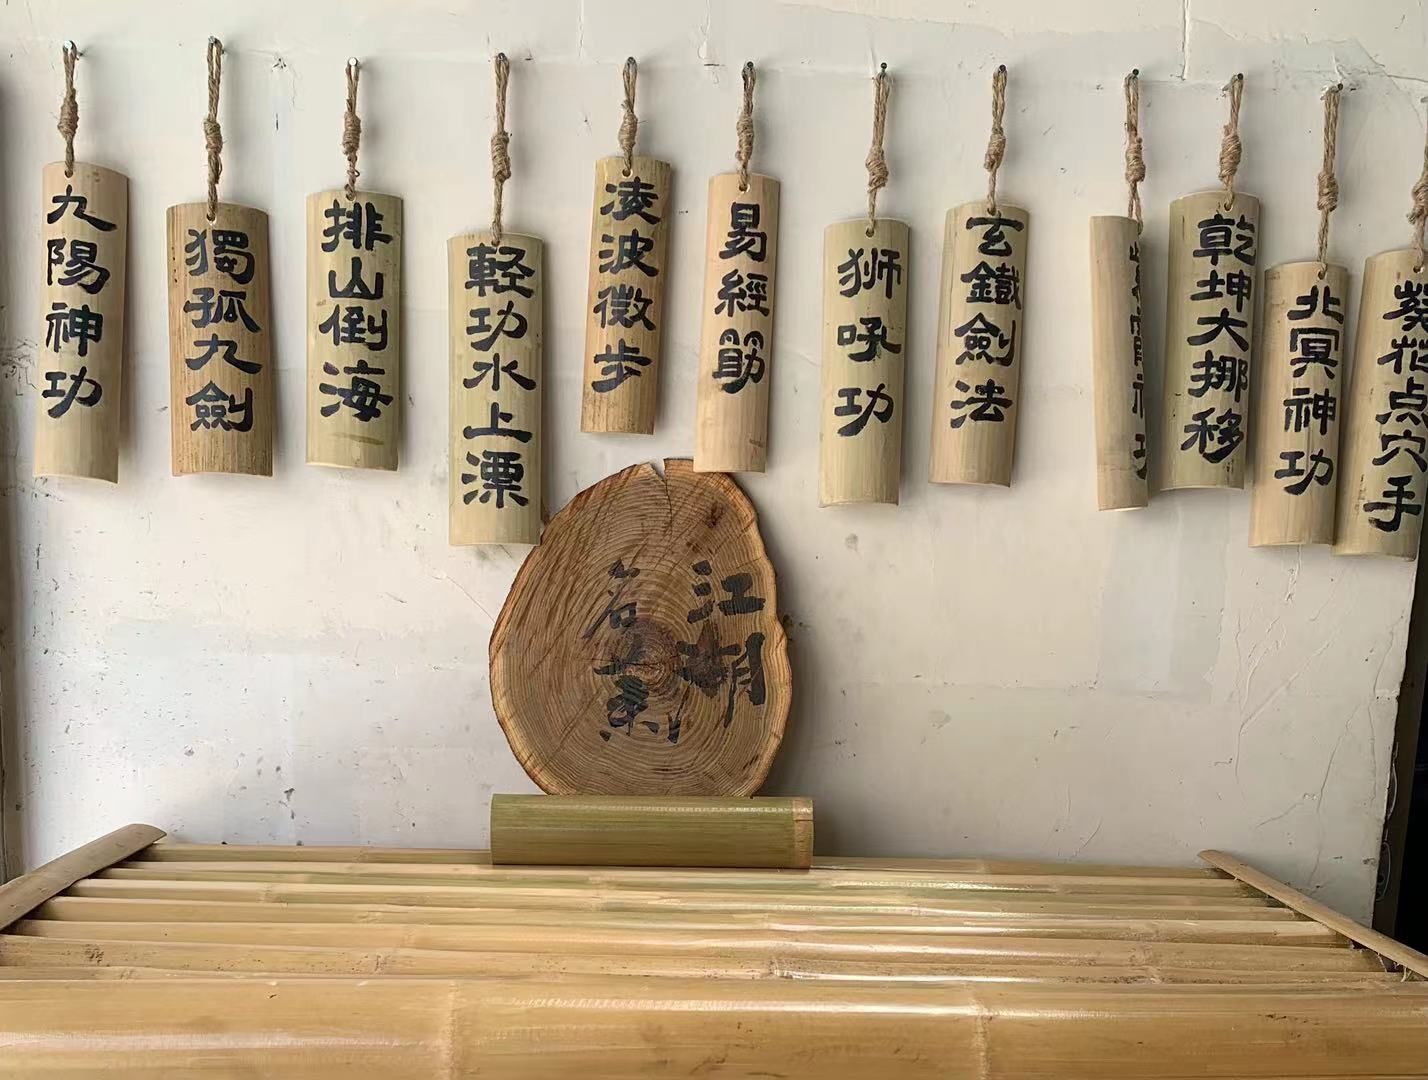 九陽神功
獨孤九劍
排山倒海
軽功水上漂
凌波微步
易經筋
狮吼功
玄鐵劍法
紫霞神功
乾坤大挪移
北冥神功
葵花点穴手
江湖
名菜